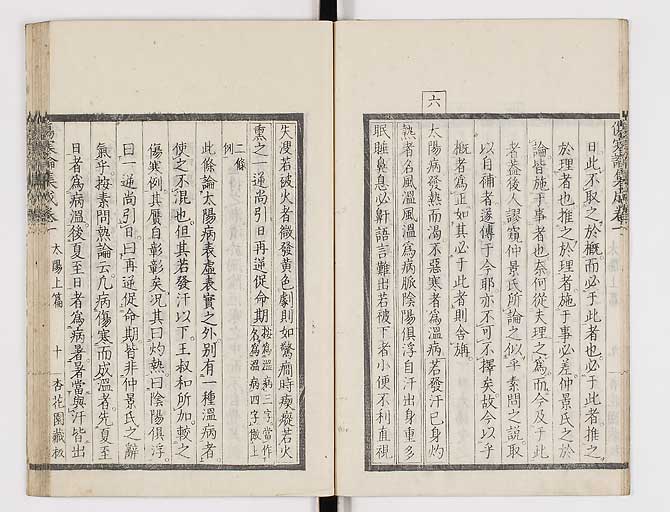 日此不取之於概而必于此者也必于此者推之
於理者也推之於理者施于事必差仲景氏之於
論皆施于事者也奈何從夫理之為而今及于此
者蓋後人謬窺仲景氏所論之似乎素問之說取
以自補者遂傳于今耶亦不可不擇矣故今以乎
概者為正如其必于此者則舍旃
六
太陽病發熱而渴不惡寒者為溫病若發汗已身灼
熱者名風溫風溫為病脈陰陽俱浮自汗出身重多
眠睡鼻息必鼾語言難出若被下者小便不利直視
失溲若被火者微發黃色劇則如驚癇時瘈瘲若火
熏之一逆尚引日再逆促命期
按為溫病三字當作
名為溫病四字傲上
二條
例
此條論太陽病表虛表實之外別有一種溫病者
使之不混也但其若發汗以下王叔和所加較之
傷寒例其贋自彰彰矣況其曰灼熱曰陰陽俱浮
曰一逆尚引日曰再逆促命期皆非仲景氏之辭
氣乎按素問熱論云凡病傷寒而成溫者先夏至
日者為病溫後夏至日者為病暑暑當與汗皆出
傷寒論集成卷一
太陽上篇
十
杏花園藏板